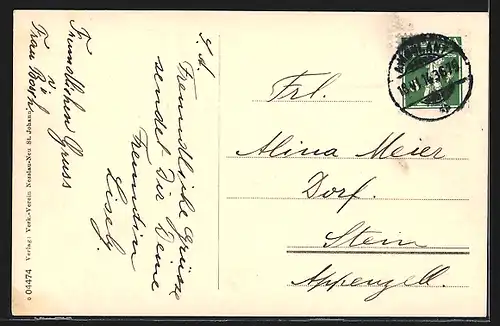 Freundlichen Gruss
v.
Frau Bösch.
L. A.
Freundliche Grüsse
sendet Dir Deine
Freundin
Lisely.
Frl.
Alina Meier
Dorf.
Stein
Appenzell.
o 04474 Verlag: Verk.-Verein Nesslau-Neu St. Johann